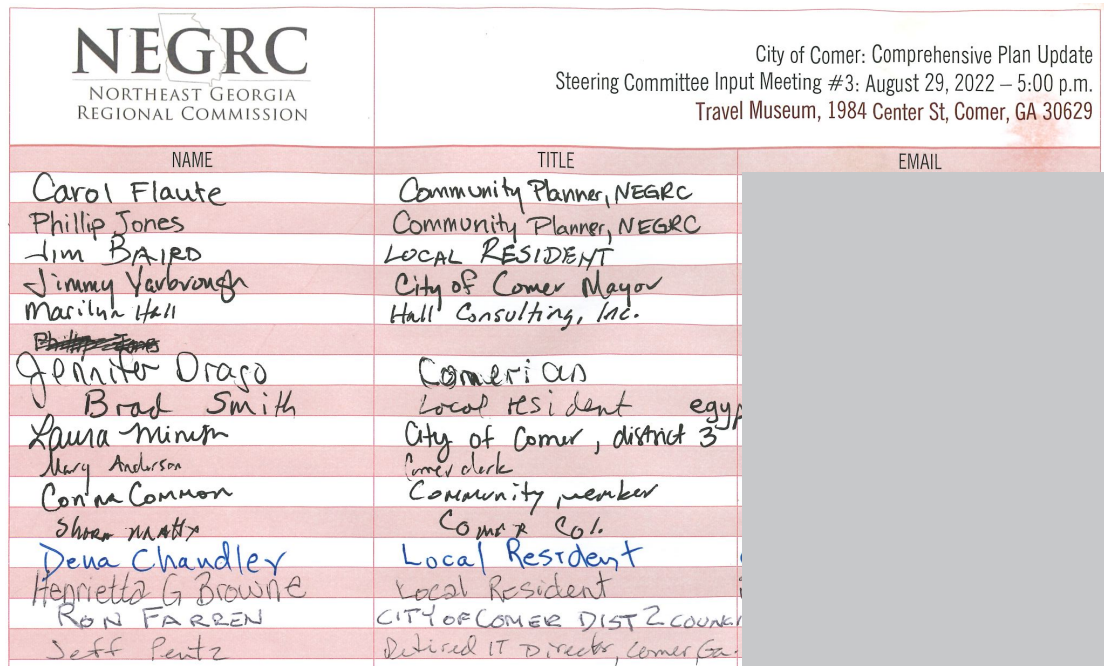 NEGRC
NORTHEAST GEORGIA
REGIONAL COMMISSION
City of Comer: Comprehensive Plan Update
Steering Committee Input Meeting #3: August 29, 2022 – 5:00 p.m.
Travel Museum, 1984 Center St, Comer, GA 30629
NAME TITLE EMAIL
Carol Flaute Community Planner, NEGRC
Phillip Jones Community Planner, NEGRC
Jim BAIRD LOCAL RESIDENT
Jimmy Yarbrough City of Comer Mayor
Marilyn Hall Hall Consulting, Inc.
Phillip Jones
Jennifer Drago Comerian
Brad Smith Local resident egyp
Laura City of Comer, district 3
Mary Anderson Comer clerk
Common Community member
Comer
Dena Chandler Local Resident
Henrietta G Browne Local Resident
RON FARREN CITY OF COMER DIST 2 COUNCI
Jeff Pentz Retired IT Director, Comer Ga.